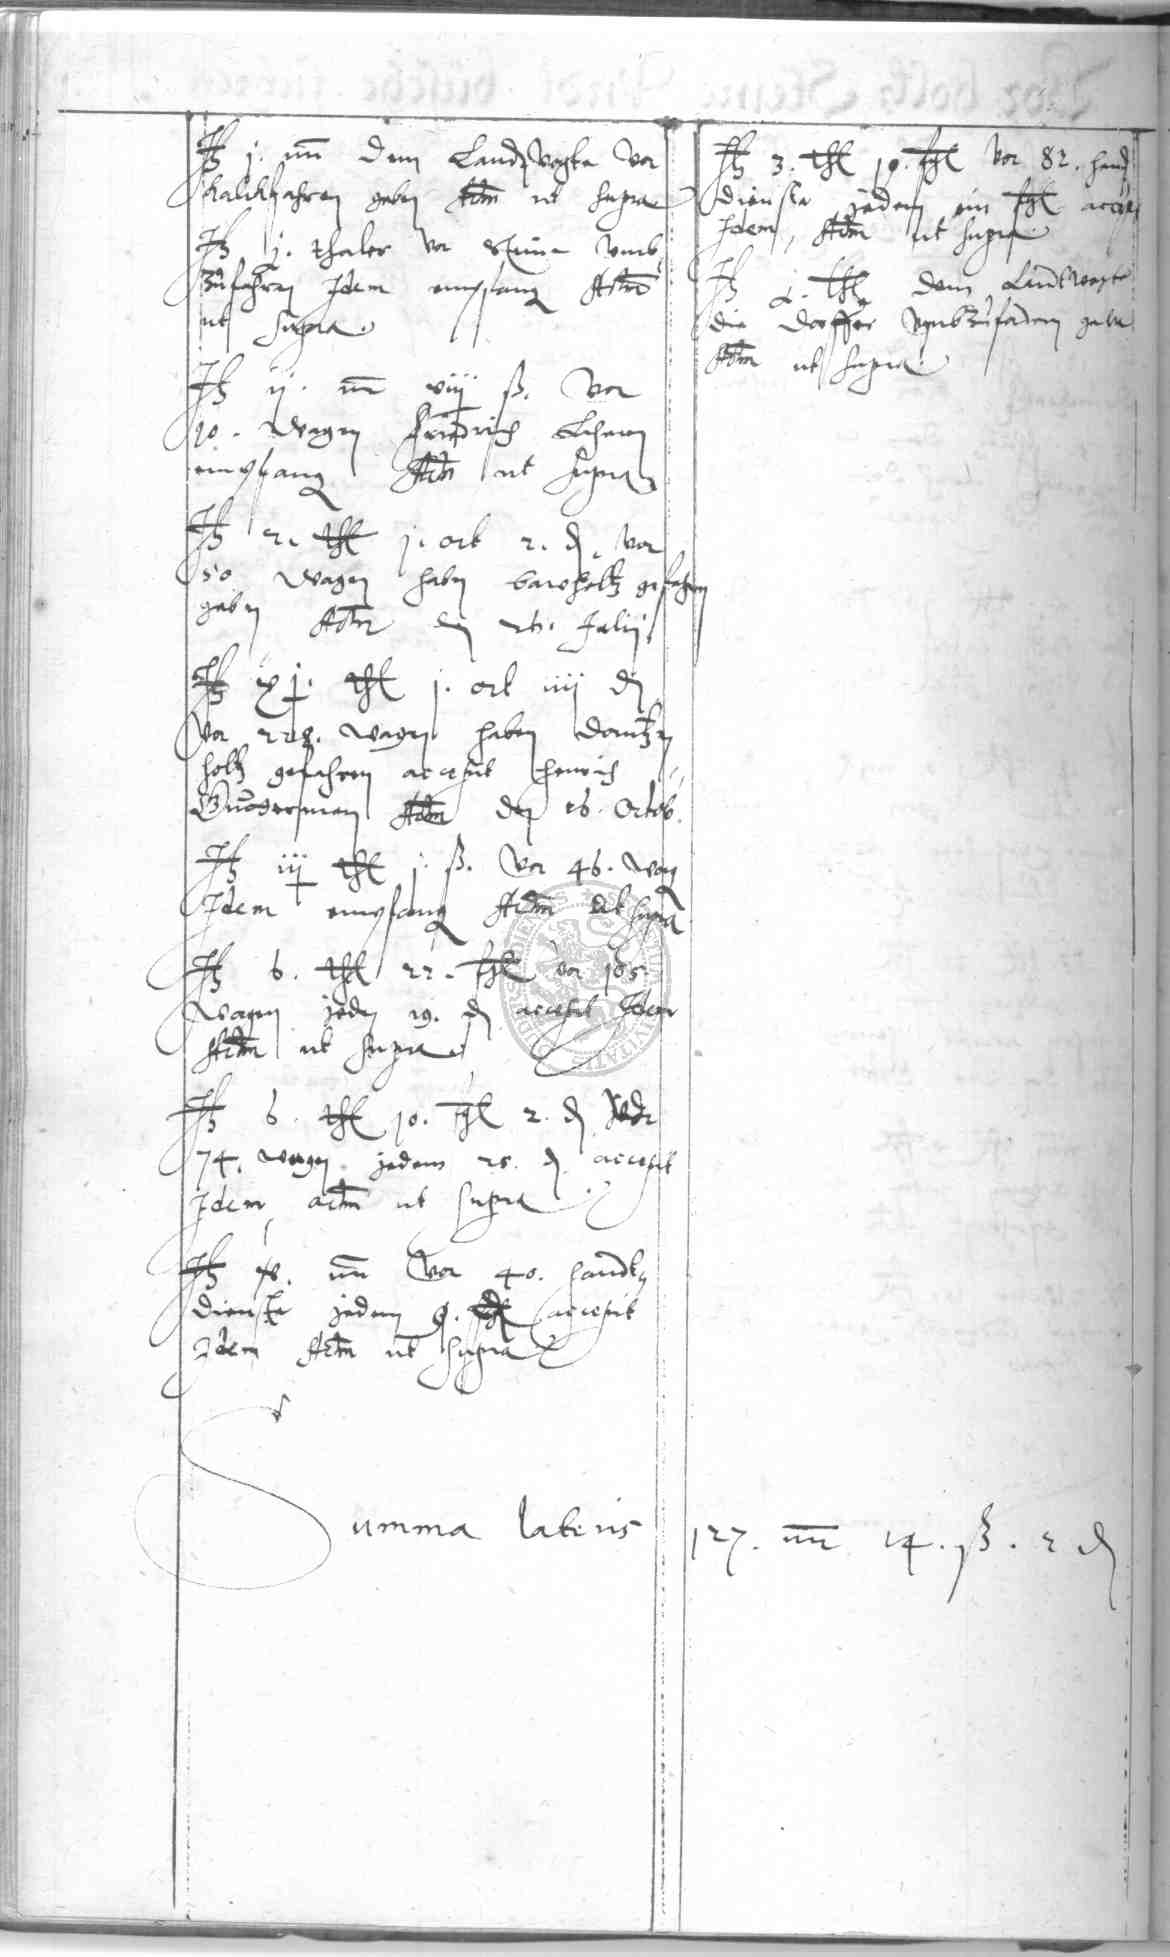 It j. mr dem Landtvogte vor
kalckfahren geben Actum ut supra
It j. thaler vor Steine umb
zufahren Idem empfang Actum
ut supra.
It ij. mr viij ß. Vor
10. Wagen Fridrich
empfang Actum ut supra
It 2. thl j. ort 2. d. vor
50 Wagen haben bawholtz gefahren
geben Actum den 26. Julij
It xj. thl j. ort iiij d
vor 228. wagen haben
holtz gefahren accepit Henrich
Actum den 16. Octob.
It iij thl j. ß. Vor 46. wag
Idem empfang Actum ut supra
It 6. thl 22. ßl vor 105
wagen jeden 19. d accepit Idem
Actum ut supra
It 6. thl 10. ßl 2. d Vor
74. wagen jedem 25. d. accepit
Idem actum ut supra
It mr Vor 40. handt
dienste jedem accepit
Idem Actum ut supra
It 3. thl 10. ßl Vor 82. hand
dienste jedem ein ßl accepit
Idem, Actum ut supra
It thl dem Landtvogte
die Dorffer umbzufadern gebe
Actum ut supra
Summa lateris 127. mr 14. ß. 2 d